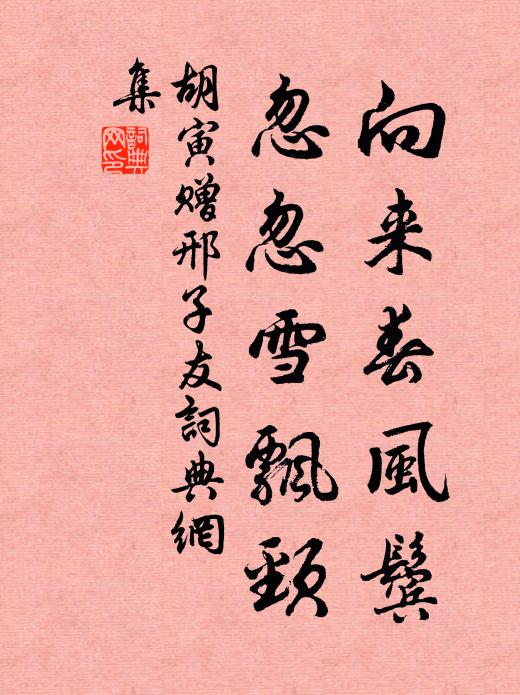 向来春風鬢
忽忽雪飄頸
胡寅贈邢子友詞典網
集
詞典網印